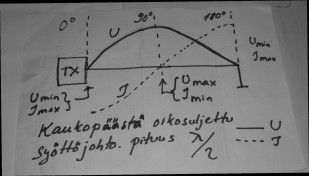 0° 90° 180°
U
U min
J max
TX
J
U max
J min
U min
J max
Kaukopäästä oikosuljettu — U
Syöttöjohto. pituus λ/2 --- J